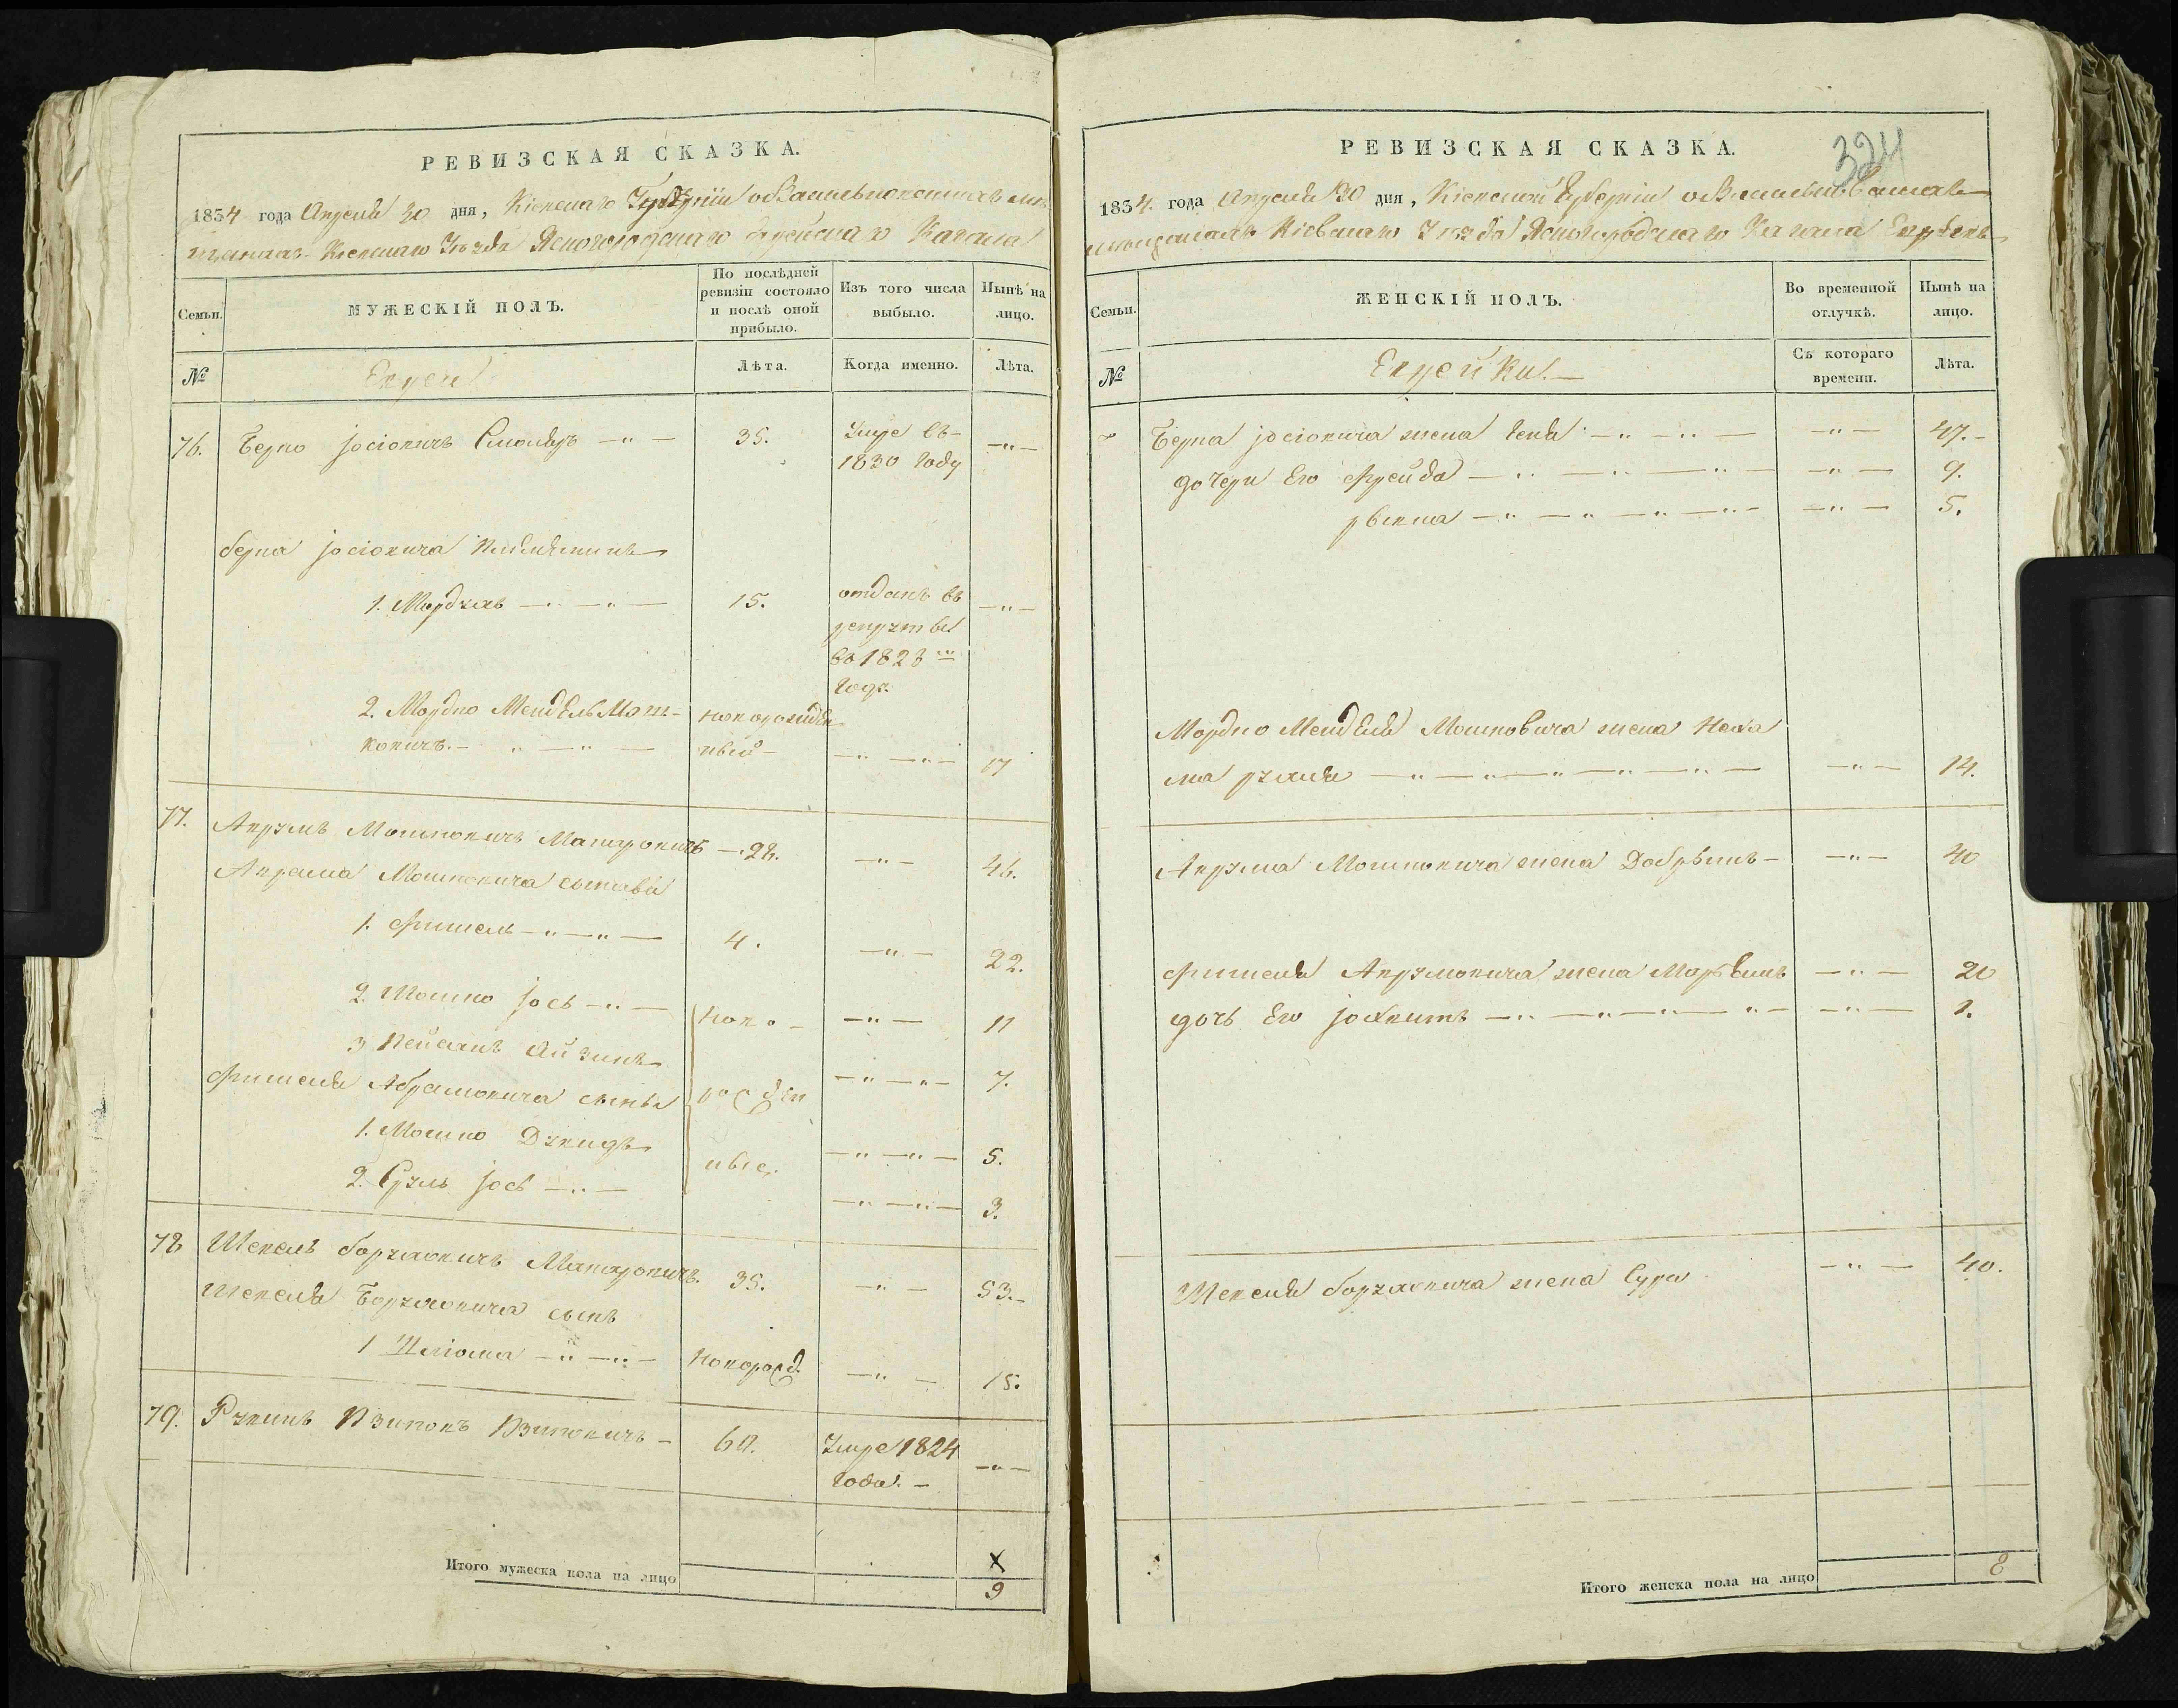 РЕВИЗСКАЯ СКАЗКА.
1834 года Апреля 30 дня, Кіевской Губерніи
Кіевскаго Уѣзда Ясногородскаго Еврейскаго Кагала
Семьи.
МУЖЕСКІЙ ПОЛЪ.
По послѣдней ревизіи состояло и послѣ оной прибыло.
Изъ того числа выбыло.
Нынѣ на лицо.
№
Евреи
Лѣта.
Когда именно.
Лѣта.
76. Берко Іосіовичъ 35. Умре въ —„—
1830 году
Берка Іосіовича племянники
1. Мордхай —„— 15. отданъ въ —„—
рекруты
въ 1828 м
годѣ
2. Мордко Мендель Мош- новорожден-
ковичъ. —„— ный —„— 17
77. Аврумъ Мошковичъ Матусовичъ —28. —„— 46.
Аврама Мошковича сыновья
1. Фишель —„— 4. —„— 22.
2. Мошко Іось —„— ново- —„— 11
3 Пейсахъ Айзикъ —„— 7.
Фишеля Абрамовича сынья рожден
1. Мошко Дувидъ ные. —„— 5.
2. Сруль Іось —„— —„— 3.
78 Шевель Борховичъ Матусовичъ 35. —„— 53.
Шевеля Борховича сынъ
1 Шліома —„— новорожд. —„— 15.
79. Рувинъ Ицковъ Ицковичъ — 60. Умре 1824 —„—
года. —
Итого мужеска пола на лицо 9
РЕВИЗСКАЯ СКАЗКА.
324
1834 года Апреля 30 дня, Кіевской Губерніи
Кіевскаго Уезда Ясногородскаго Кагала Евреевъ
Семьи.
ЖЕНСКІЙ ПОЛЪ.
Во временной отлучкѣ.
Нынѣ на лицо.
№
Еврейки. —
Съ котораго времени.
Лѣта.
Берка Іосіовича жена Геня —„— 47. -
дочери Его Фрейда —„— 9.
рывка —„— 5.
Мордко Менделя Мошковича жена Неха
ма рухля —„— 14.
Аврума Мошковича жена Добрышъ — —„— 40
Фишеля Аврумовича жена —„— 20
дочь Его —„— 1.
Шевеля Борховича жена Сура —„— 40.
Итого женска пола на лицо 8